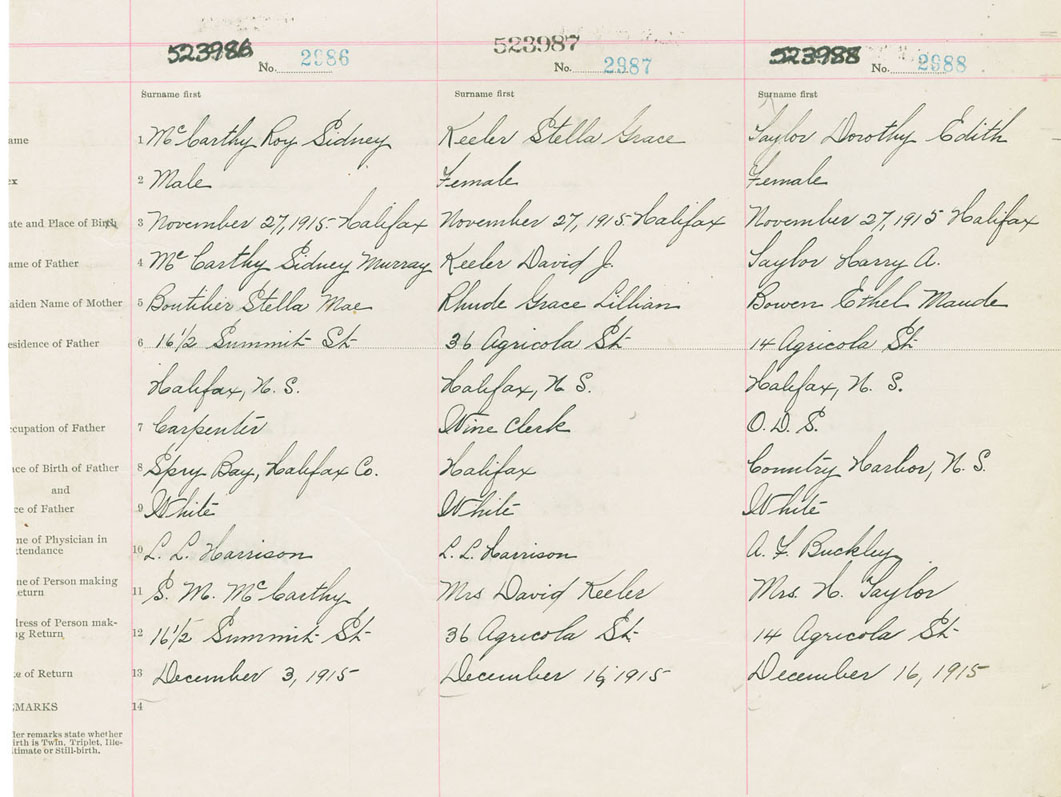 523986 No. 2986 523987 No. 2987 523988 No. 2988
Surname first Surname first Surname first
ame 1 McCarthy Roy Sidney Keeler Stella Grace Taylor Dorothy Edith
ex 2 Male Female Female
ate and Place of Birth 3 November 27, 1915 Halifax November 27, 1915 Halifax November 27, 1915 Halifax
ame of Father 4 McCarthy Sidney Murray Keeler David J. Taylor Harry A.
aiden Name of Mother 5 Boutilier Stella Mae Rhude Grace Lillian Bowen Ethel Maude
esidence of Father 6 16 1/2 Summit St 36 Agricola St 14 Agricola St
Halifax, N. S. Halifax, N S. Halifax, N. S.
ccupation of Father 7 Carpenter Wine Clerk O. D. S.
ace of Birth of Father 8 Spry Bay, Halifax Co. Halifax Country Harbor, N. S.
and
ce of Father 9 White White White
me of Physician in
ttendance 10 L. L. Harrison L. L. Harrison A. F. Buckley
me of Person making
eturn 11 S. M. McCarthy Mrs David Keeler Mrs. H. Taylor
dress of Person mak-
ng Return 12 16 1/2 Summit St 36 Agricola St 14 Agricola St
te of Return 13 December 3, 1915 December 16, 1915 December 16, 1915
EMARKS 14
der remarks state whether
irth is Twin, Triplet, Ille-
itimate or Still-birth.